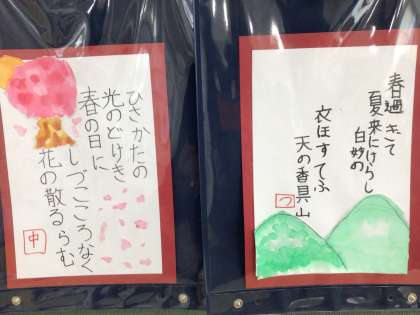 ひさかたの
光のどけき
春の日に
しづこころなく
花の散るらむ
中
春過ぎて
夏来にけらし
白妙の
衣ほすてふ
天の香具山
つ